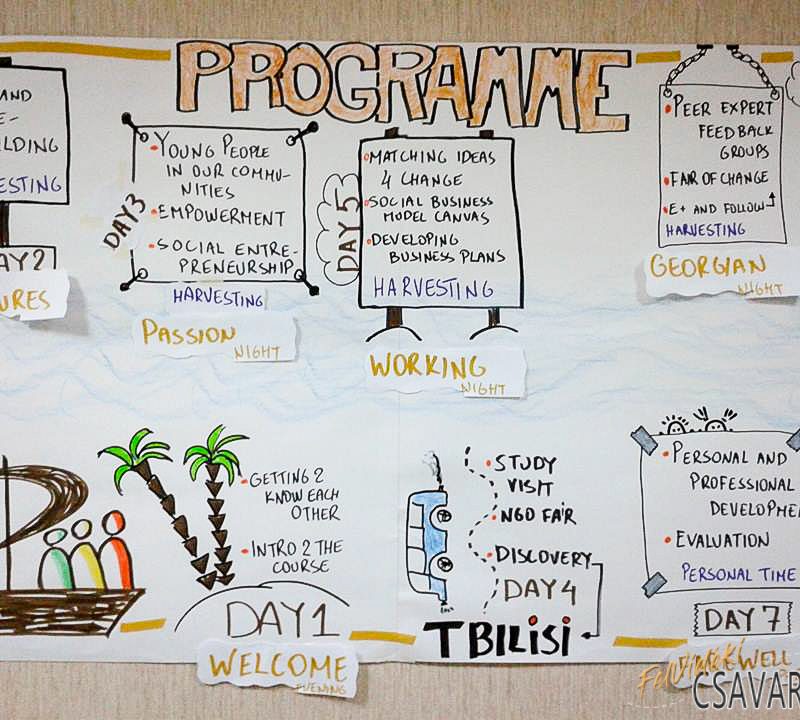 PROGRAMME
AND
LDING
ESTING
AY2
URES
DAY3
YOUNG PEOPLE
IN OUR COMMU-
NITIES
EMPOWERMENT
SOCIAL ENTRE-
PRENEURSHIP
HARVESTING
PASSION
NIGHT
DAY 5
MATCHING IDEAS
4 CHANGE
SOCIAL BUSINESS
MODEL CANVAS
DEVELOPING
BUSINESS PLANS
HARVESTING
WORKING
NIGHT
PEER EXPERT
FEEDBACK
GROUPS
FAIR OF CHANGE
E+ AND FOLLOW↑
HARVESTING
GEORGIAN
NIGHT
GETTING 2
KNOW EACH
OTHER
INTRO 2 THE
COURSE
DAY 1
WELCOME
EVENING
STUDY
VISIT
NGO FAIR
DISCOVERY
DAY 4
TBILISI
PERSONAL AND
PROFESSIONAL
DEVELOPME
EVALUATION
PERSONAL TIME
DAY 7
EWELL
CSAVAR